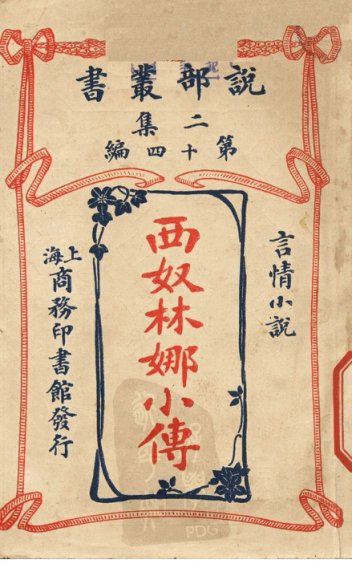 說部叢書
二集
第十四編
言情小說
西奴林娜小傳
上海
商務印書館發行
PDG